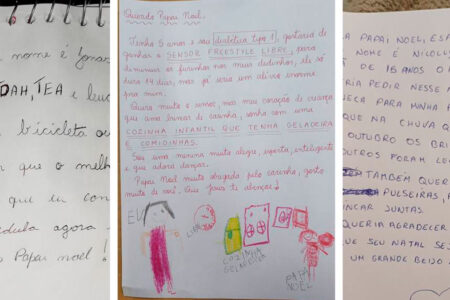 nome é Jonas
DAH, TEA e
bicicleta ou
er que o melh
que tu con
agora
Papai noel!
Querido Papai Noel,
Tenho 5 anos e sou diabética tipo 1, gostaria de
ganhar o SENSOR FREESTYLE LIBRE, para
diminuir os furinhos nos meus dedinhos, ele só
dura 14 dias, mas já seria um alívio enorme
pra mim.
Queria muito o sensor, mas meu coração de criança
que ama brincar de casinha, sonha com uma
COZINHA INFANTIL QUE TENHA GELADEIRA
E COMIDINHAS.
Sou uma menina muito alegre, esperta, inteligente
e que adora dançar.
Papai Noel muito obrigada pelo carinho, gosto
muito de você. Que Jesus te abençoe!
EU
LIBRE
COZINHA
GELADEIRA
PAPAI
NOEL
PAPAI NOEL, ESP
NOME É NICOLL
DE 16 ANOS O
RIA PEDIR NESSE
ECA PARA MINHA
QUE NA CHUVA Q
OUTUBRO OS BRI
OUTROS FORAM LE
TAMBÉM QUER
PULSEIRAS,
INCAR JUNTAS.
QUERIA AGRADECER
QUE SEU NATAL SEJ
UM GRANDE BEIJO